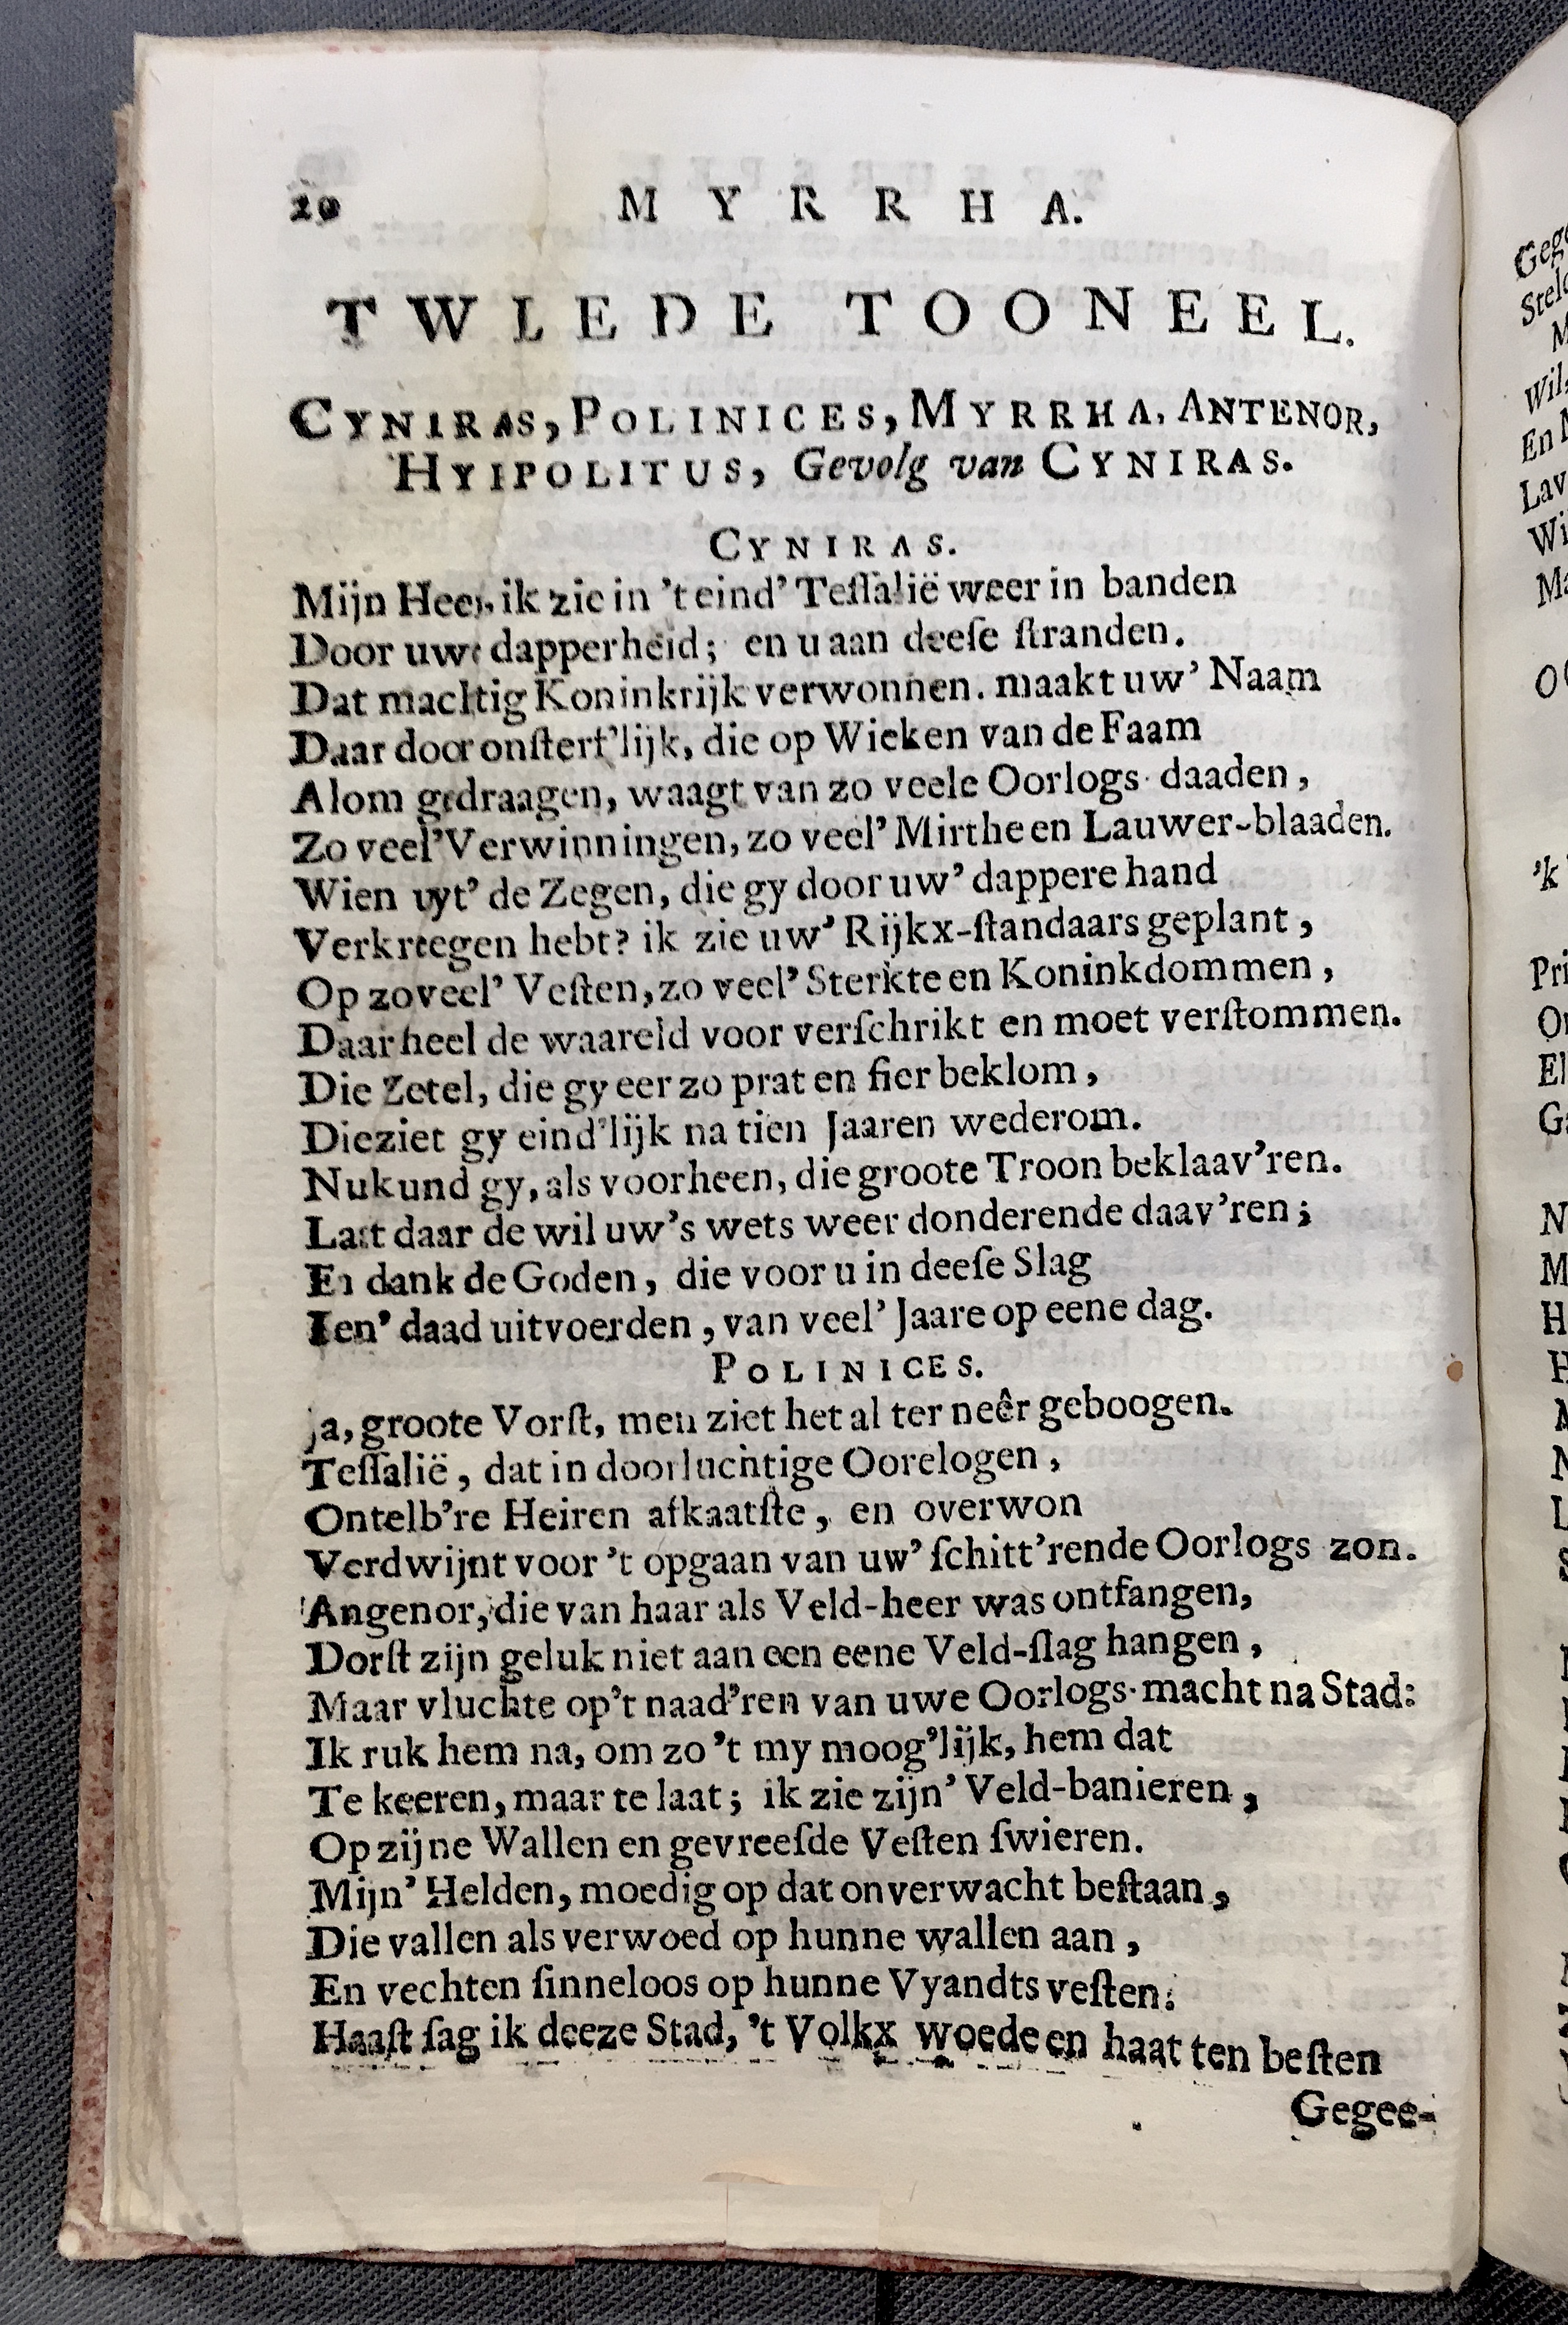 20 MYRRHA.
TWLEDE TOONEEL.
CYNIRAS, POLINICES, MYRRHA, ANTENOR,
HYIPOLITUS, Gevolg van CYNIRAS.
CYNIRAS.
Mijn Heer, ik zie in 't eind' Teſſalië weer in banden
Door uwe dapperheid; en u aan deeſe ſtranden.
Dat machtig Koninkrijk verwonnen. maakt uw' Naam
Daar door onſterf'lijk, die op Wieken van de Faam
Alom gedraagen, waagt van zo veele Oorlogs-daaden,
Zo veel' Verwinningen, zo veel' Mirthe en Lauwer-blaaden.
Wien uyt' de Zegen, die gy door uw' dappere hand
Verkreegen hebt? ik zie uw' Rijkx-ſtandaars geplant,
Op zo veel' Veſten, zo veel' Sterkte en Koninkdommen,
Daar heel de waareld voor verſchrikt en moet verſtommen.
Die Zetel, die gy eer zo prat en fier beklom,
Die ziet gy eind'lijk na tien Jaaren wederom.
Nu kund gy, als voorheen, die groote Troon beklaav'ren.
Laat daar de wil uw's wets weer donderende daav'ren;
En dank de Goden, die voor u in deeſe Slag
Een' daad uitvoerden, van veel' Jaare op eene dag.
POLINICES.
Ja, groote Vorſt, men ziet het al ter neêr geboogen.
Teſſalië, dat in doorluchtige Oorelogen,
Ontelb're Heiren afkaatſte, en overwon
Verdwijnt voor 't opgaan van uw' ſchitt'rende Oorlogs zon.
Angenor, die van haar als Veld-heer was ontfangen,
Dorſt zijn geluk niet aan een eene Veld-ſlag hangen,
Maar vluchte op't naad'ren van uwe Oorlogs-macht na Stad:
Ik ruk hem na, om zo 't my moog'lijk, hem dat
Te keeren, maar te laat; ik zie zijn' Veld-banieren,
Op zijne Wallen en gevreeſde Veſten ſwieren.
Mijn' Helden, moedig op dat onverwacht beſtaan,
Die vallen als verwoed op hunne wallen aan,
En vechten ſinneloos op hunne Vyandts veſten:
Haaſt ſag ik deeze Stad, 't Volkx woede en haat ten beſten
Gegee-
Gege
Stel
Wil,
En
Lav
Wi
Ma
'k
Pri
El